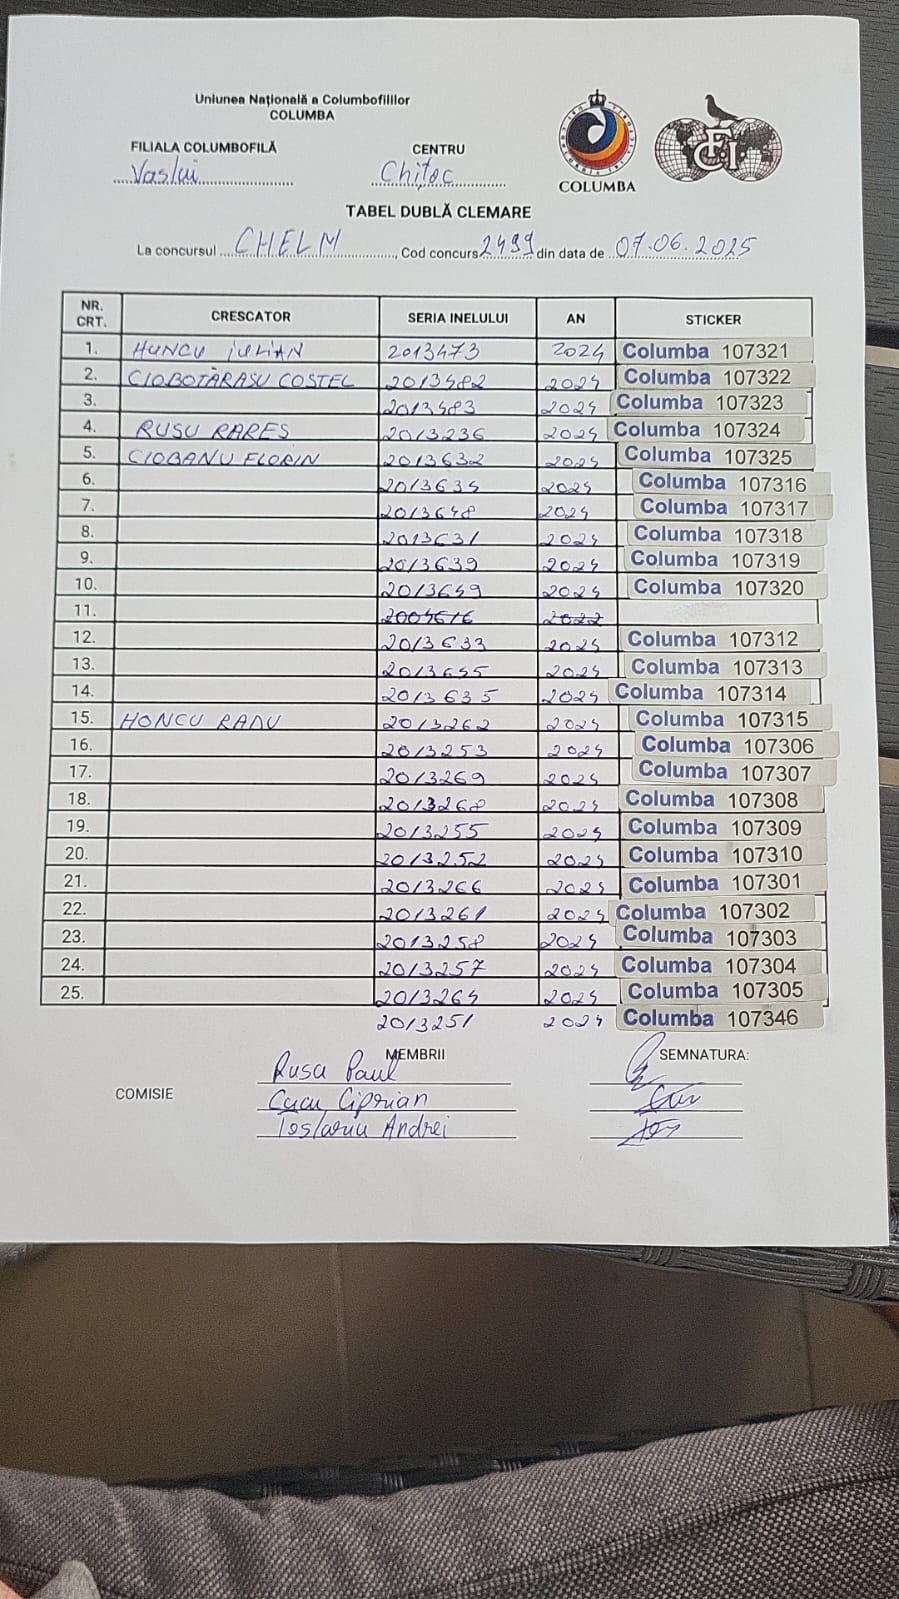 Uniunea Națională a Columbofililor
COLUMBA
FILIALA COLUMBOFILĂ CENTRU
Vaslui Chițoc
COLUMBA
FCI
TABEL DUBLĂ CLEMARE
La concursul CHELM, Cod concurs 2499 din data de 07.06.2025
NR. CRT. CRESCATOR SERIA INELULUI AN STICKER
1. HUNCU IULIAN 2013473 2024 Columba 107321
2. CIOBOTĂRAȘU COSTEL 2013482 2024 Columba 107322
3. 2013483 2024 Columba 107323
4. RUSU RARES 2013236 2024 Columba 107324
5. CIOBANU FLORIN 2013632 2024 Columba 107325
6. 2013634 2024 Columba 107316
7. 2013648 2024 Columba 107317
8. 2013631 2024 Columba 107318
9. 2013639 2024 Columba 107319
10. 2013649 2024 Columba 107320
11. 2022
12. 2013633 2024 Columba 107312
13. 2013645 2024 Columba 107313
14. 2013635 2024 Columba 107314
15. HONCU RADU 2013262 2024 Columba 107315
16. 2013253 2024 Columba 107306
17. 2013269 2024 Columba 107307
18. 2013268 2024 Columba 107308
19. 2013255 2024 Columba 107309
20. 2013252 2024 Columba 107310
21. 2013266 2024 Columba 107301
22. 2013261 2024 Columba 107302
23. 2013258 2024 Columba 107303
24. 2013257 2024 Columba 107304
25. 2013264 2024 Columba 107305
2013251 2024 Columba 107346
MEMBRII SEMNATURA:
Rusu Paul
COMISIE
Cucu Ciprian
Andrei